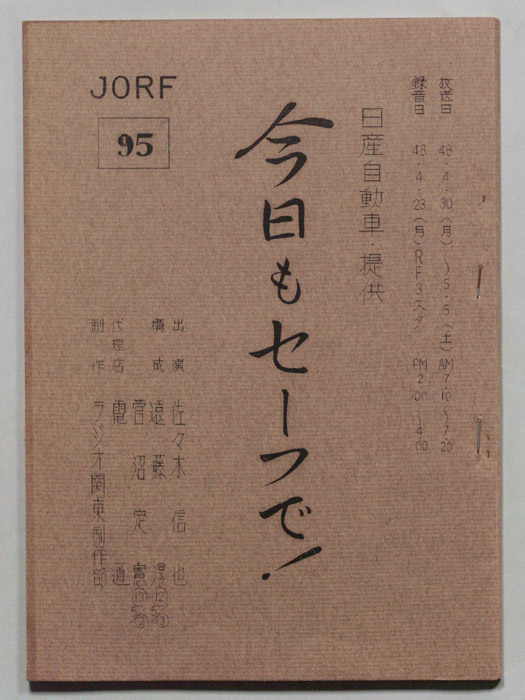 放送日 48・4・30(月)〜5・5(土) AM 7・10〜7・20
録音日 48・4・23(月) RF3スタ PM 2・00〜4・00
日産自動車・提供
今日もセーフで!
JORF
95
出演 佐々木信也
構成 遠藤淳
菅沼定憲
代理店 電通
制作 ラジオ関東制作部